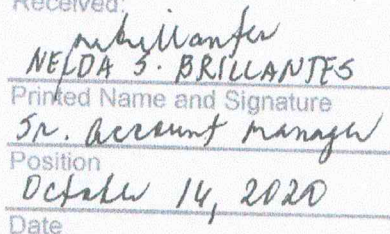 Received:
nbrillantes
NELDA S. BRILLANTES
Printed Name and Signature
Sr. Account Manager
Position
October 14, 2020
Date